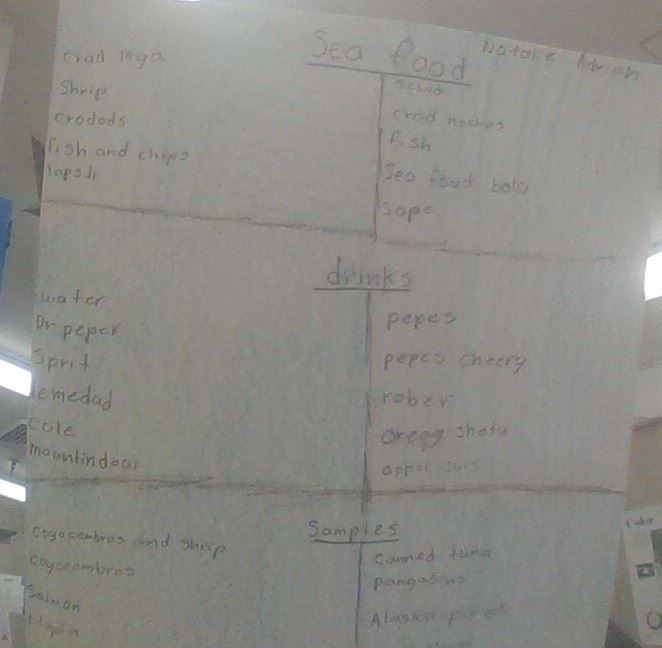 Sea food
Natalie Adrian
crad legs
Shrip
crodods
fish and chips
lopstr
crad nachos
fish
Sea food bola
Sope
drinks
water
Dr peper
Sprit
lemedad
cole
mountindow
pepes
pepes cheery
rober
appel
Samples
and Shrip
Salman
Canned tuna
pangasius
Alaska